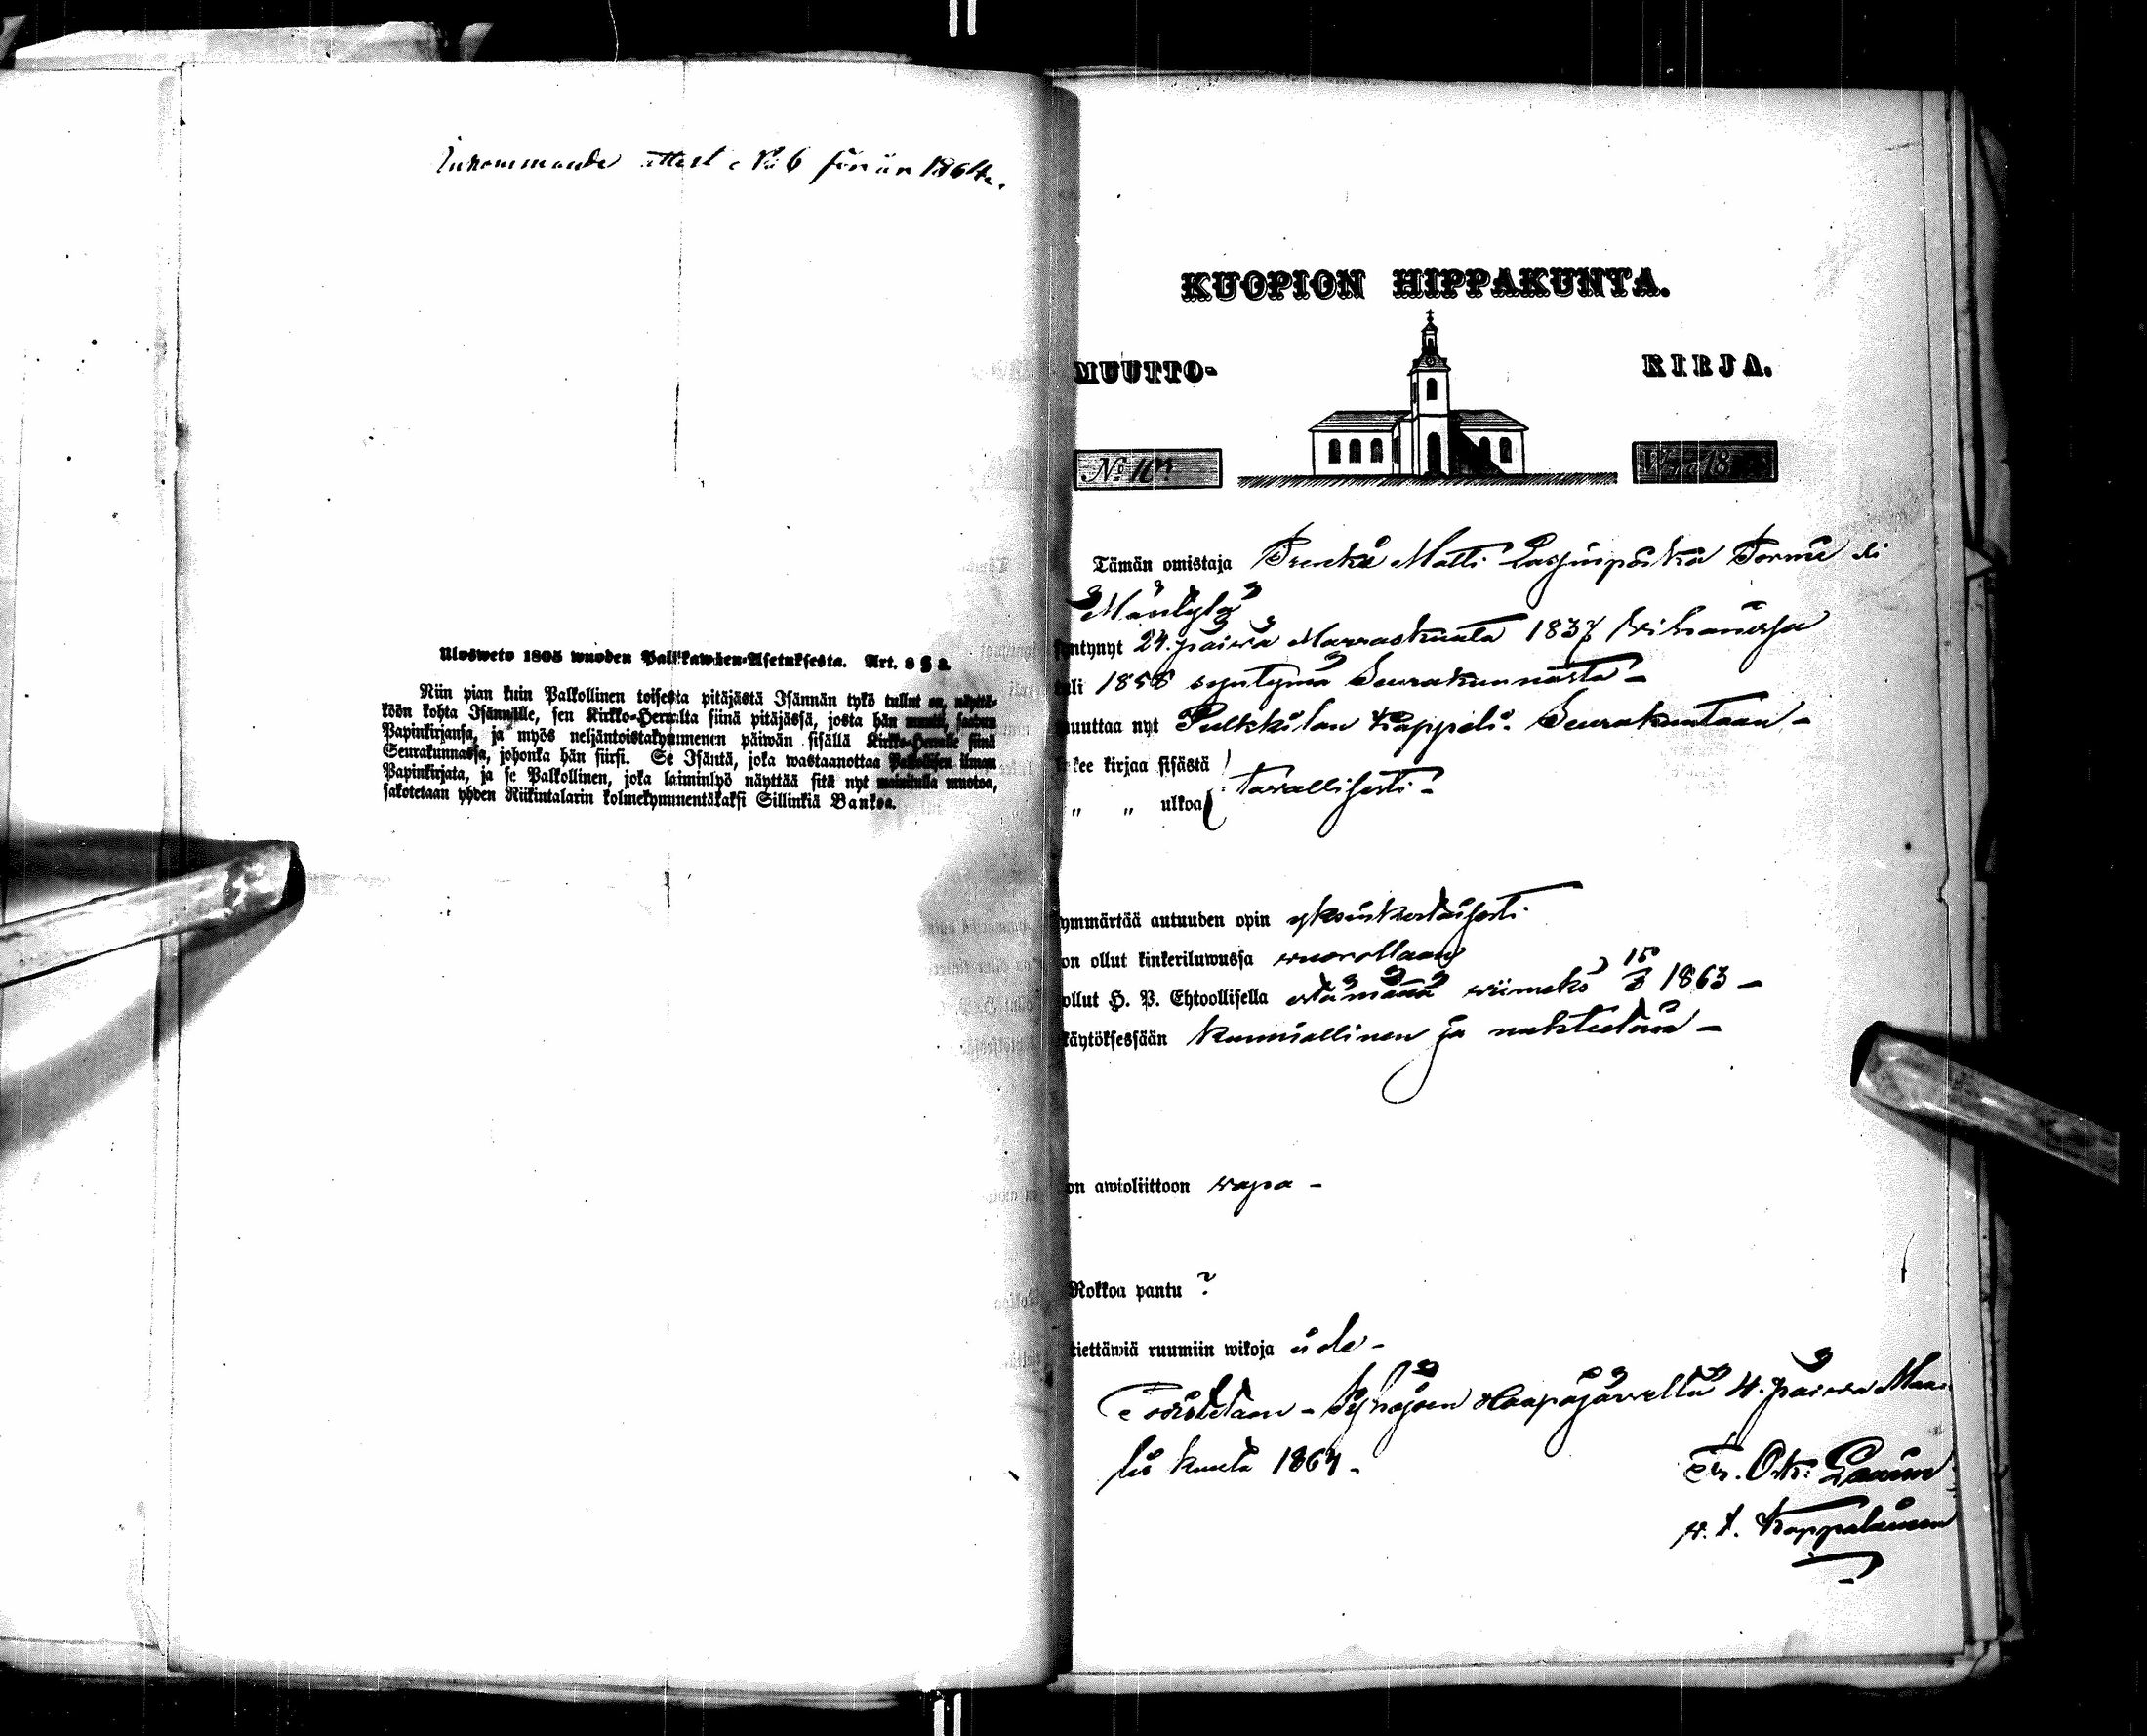 Inkommande attest No 6 för år 1864.
Ulosweto 1805 wuoden Palkkawäen-Asetuksesta. Art. 8 § 2.
Niin pian kuin Palkollinen toisesta pitäjästä Isännän tykö tullut on, näyttä-
köön kohta Isännälle, sen Kirkko-Herralta siinä pitäjässä, josta hän muutti, saadun
Papinkirjansa, ja myös neljäntoistakymmenen päiwän sisällä Kirkko-Herralle siinä
Seurakunnassa, johonka hän siirsi. Se Isäntä, joka wastaanottaa Palkollisen ilman
Papinkirjata, ja se Palkollinen, joka laiminlyö näyttää sitä nyt mainitulla muotoa,
sakotetaan yhden Riikintalarin kolmekymmentäkaksi Sillinkiä Bankoa.
KUOPION HIPPAKUNTA.
MUUTTO- KIRJA.
No 16 W:na 18
Tämän omistaja Renki Matti Laurinpoika
Mäntylä
syntynyt 24. päiwä Marraskuuta 1837
tuli 1858 syntymä Seurakunnasta –
muuttaa nyt Pulkkilan Kappeli Seurakuntaan –
lukee kirjaa sisästä
„ „ ulkoa tawallisesti –
ymmärtää autuuden opin yksinkertaisesti
on ollut kinkeriluwussa wuorollaan
ollut H. P. Ehtoollisella wiimeks 15/3 1863 –
käytöksessään kunniallinen ja nuhteetoin –
on awioliittoon wapa –
Rokkoa pantu ?
tiettäwiä ruumiin wikoja ei ole –
Todistetaan – Pyhäjoen Haapajärweltä 4. päiwä Maa-
lis kuuta 1864 –
Fr. Osk. Laurin
w. t. Kappalainen